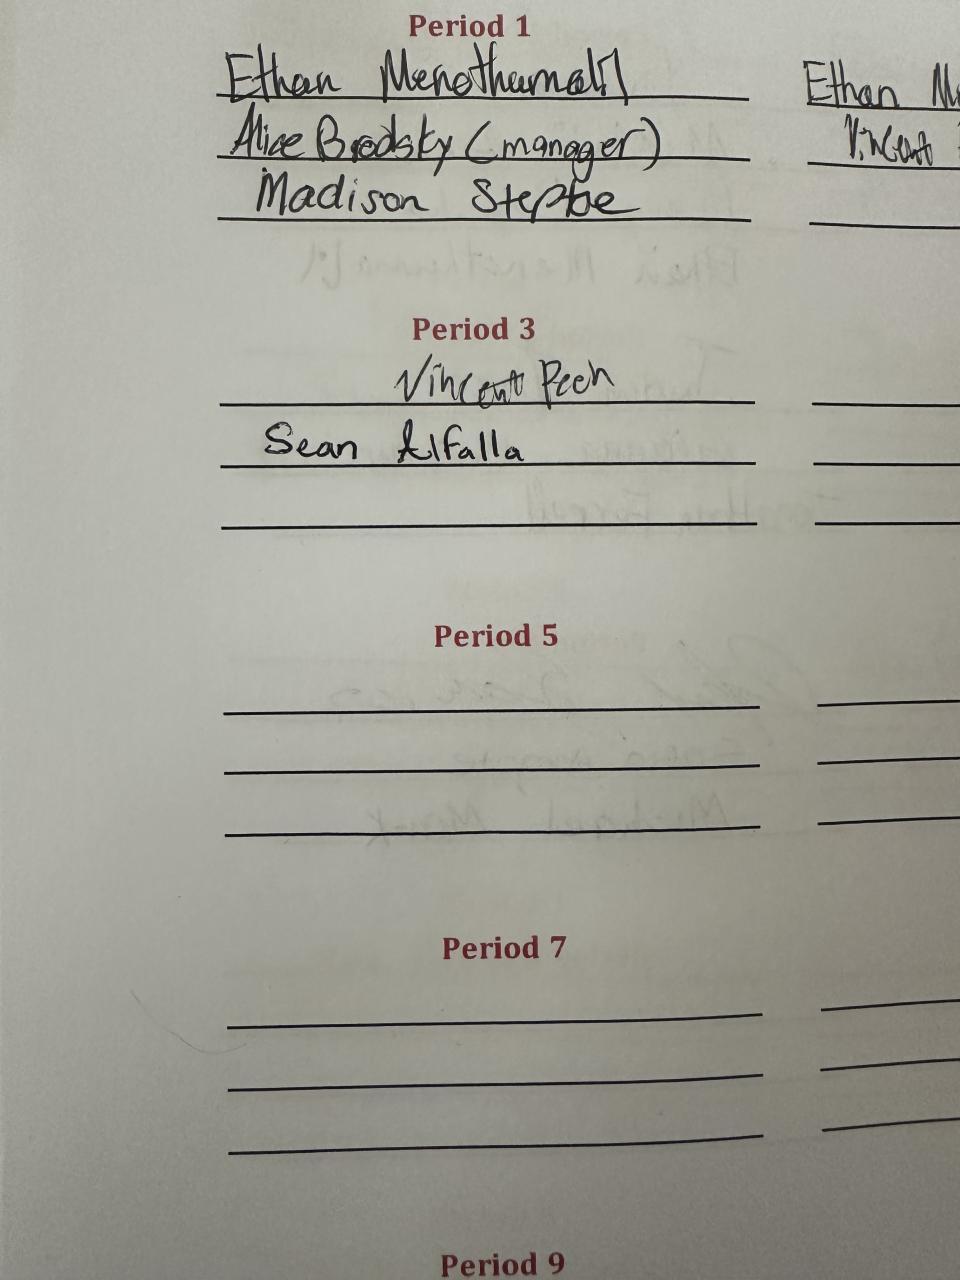 Period 1
Ethan
Alice Brodsky (manager)
Madison
Ethan
Vincent
Period 3
Vincent Pech
Sean Alfalla
Period 5
Period 7
Period 9